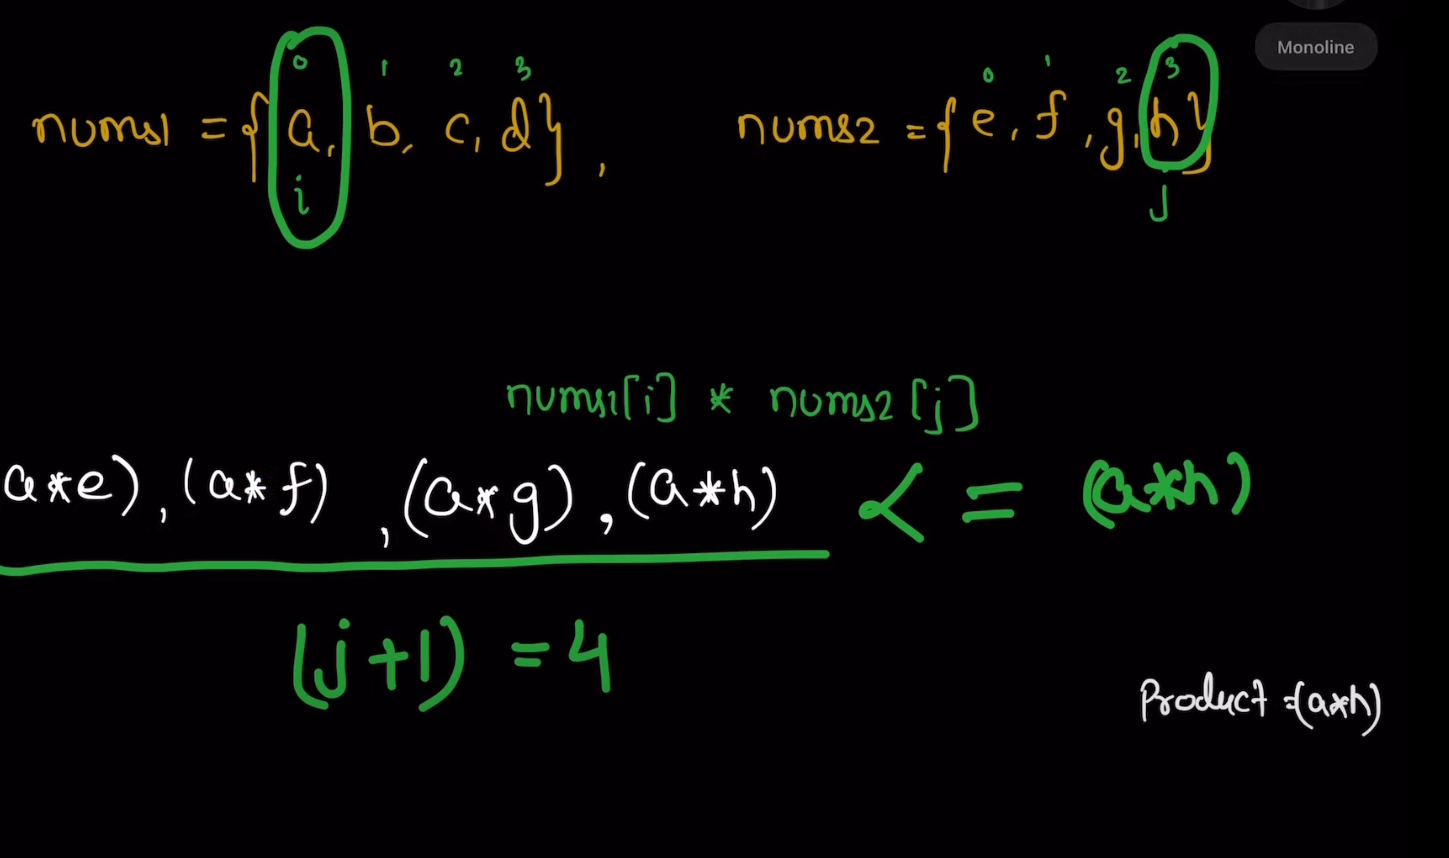 Monoline
0 1 2 3 0 1 2 3
nums1 = {a, b, c, d}, nums2 = {e, f, g, h}
i j
nums1[i] * nums2[j]
a*e), (a*f), (a*g), (a*h) <= (a*h)
(j+1) = 4
Product =(a*h)